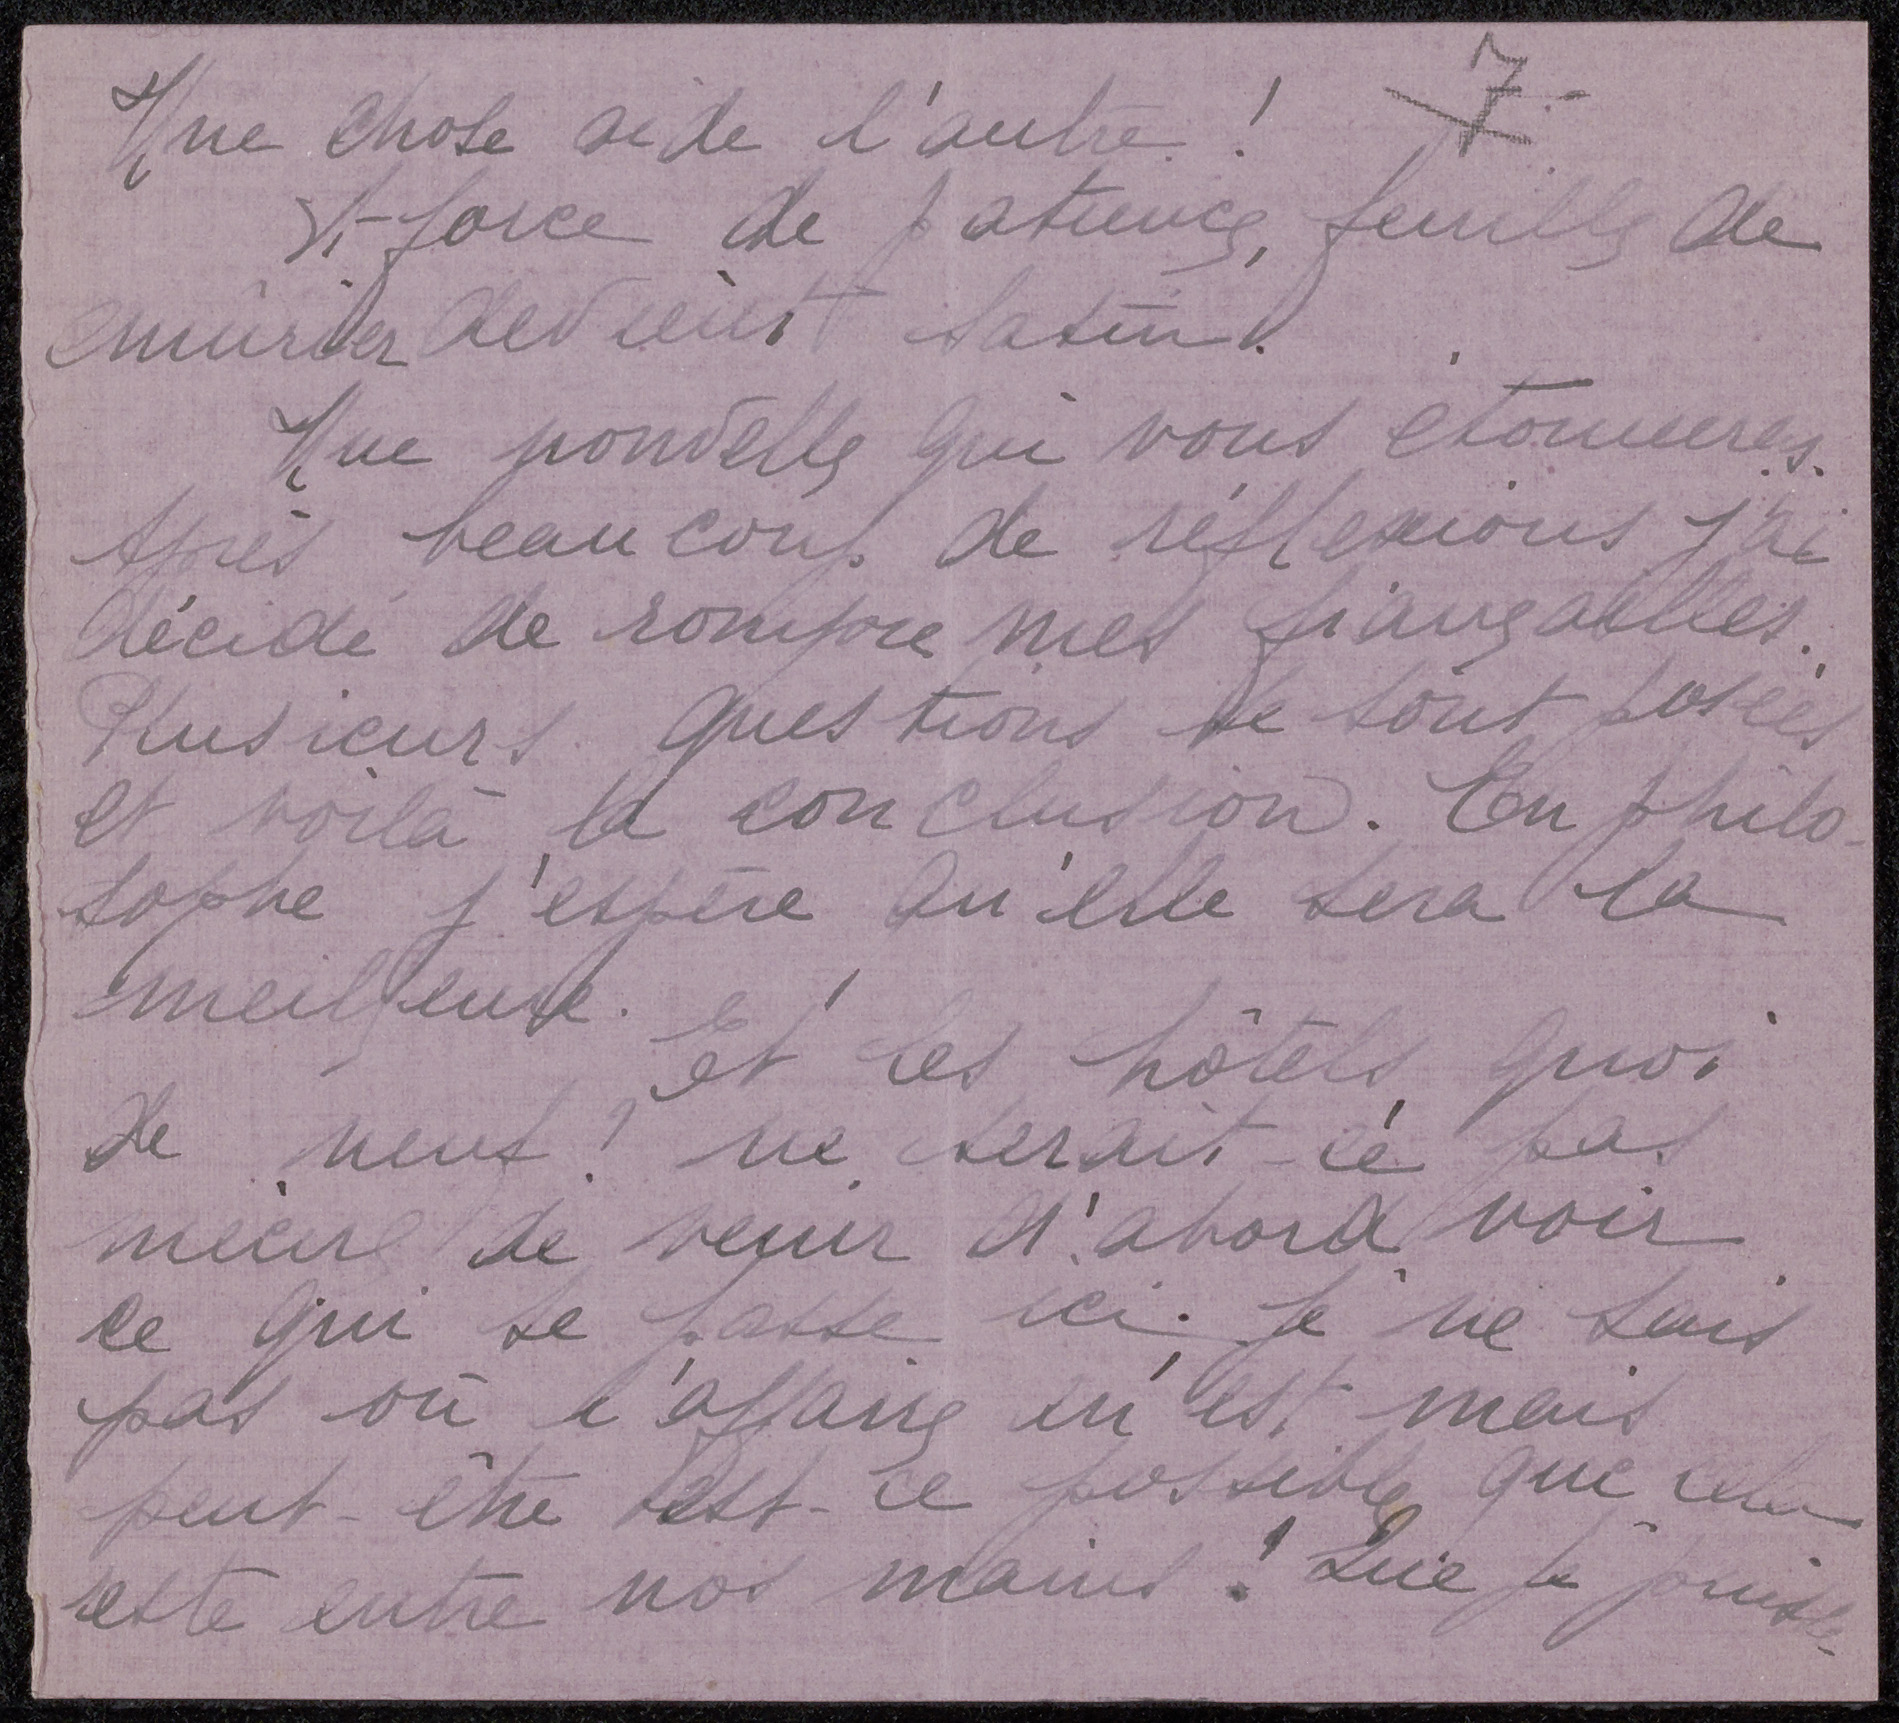 Une chose aide l'autre! 7-
A force de patience, feuille de
mûrier devient satin.
Une nouvelle qui vous étonneres.
Après beaucoup de réflexions j'ai
décidé de rompre mes fiançailles.
Plusieurs questions se sont posées
et voilà la conclusion. En philo-
sophe j'espère qu'elle sera la
meilleure.
Et les hôtels quoi
de neuf? ne serait-ce pas
mieux de venir d'abord voir
ce qui se passe ici. Je ne sais
pas où l'affaire en est mais
peut-être est-ce possible que cela
reste entre nos mains! Que je puisse